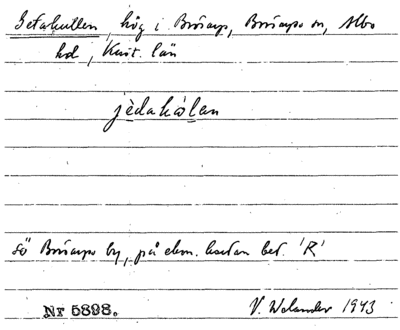 Getakullen, hög i Brösarp, Brösarps sn, Albo
hd, Krist. län
jèdakálan
sö Brösarps by, på ekon. kartan bet. 'R'
Nr 5898.
V. Wolander 1943